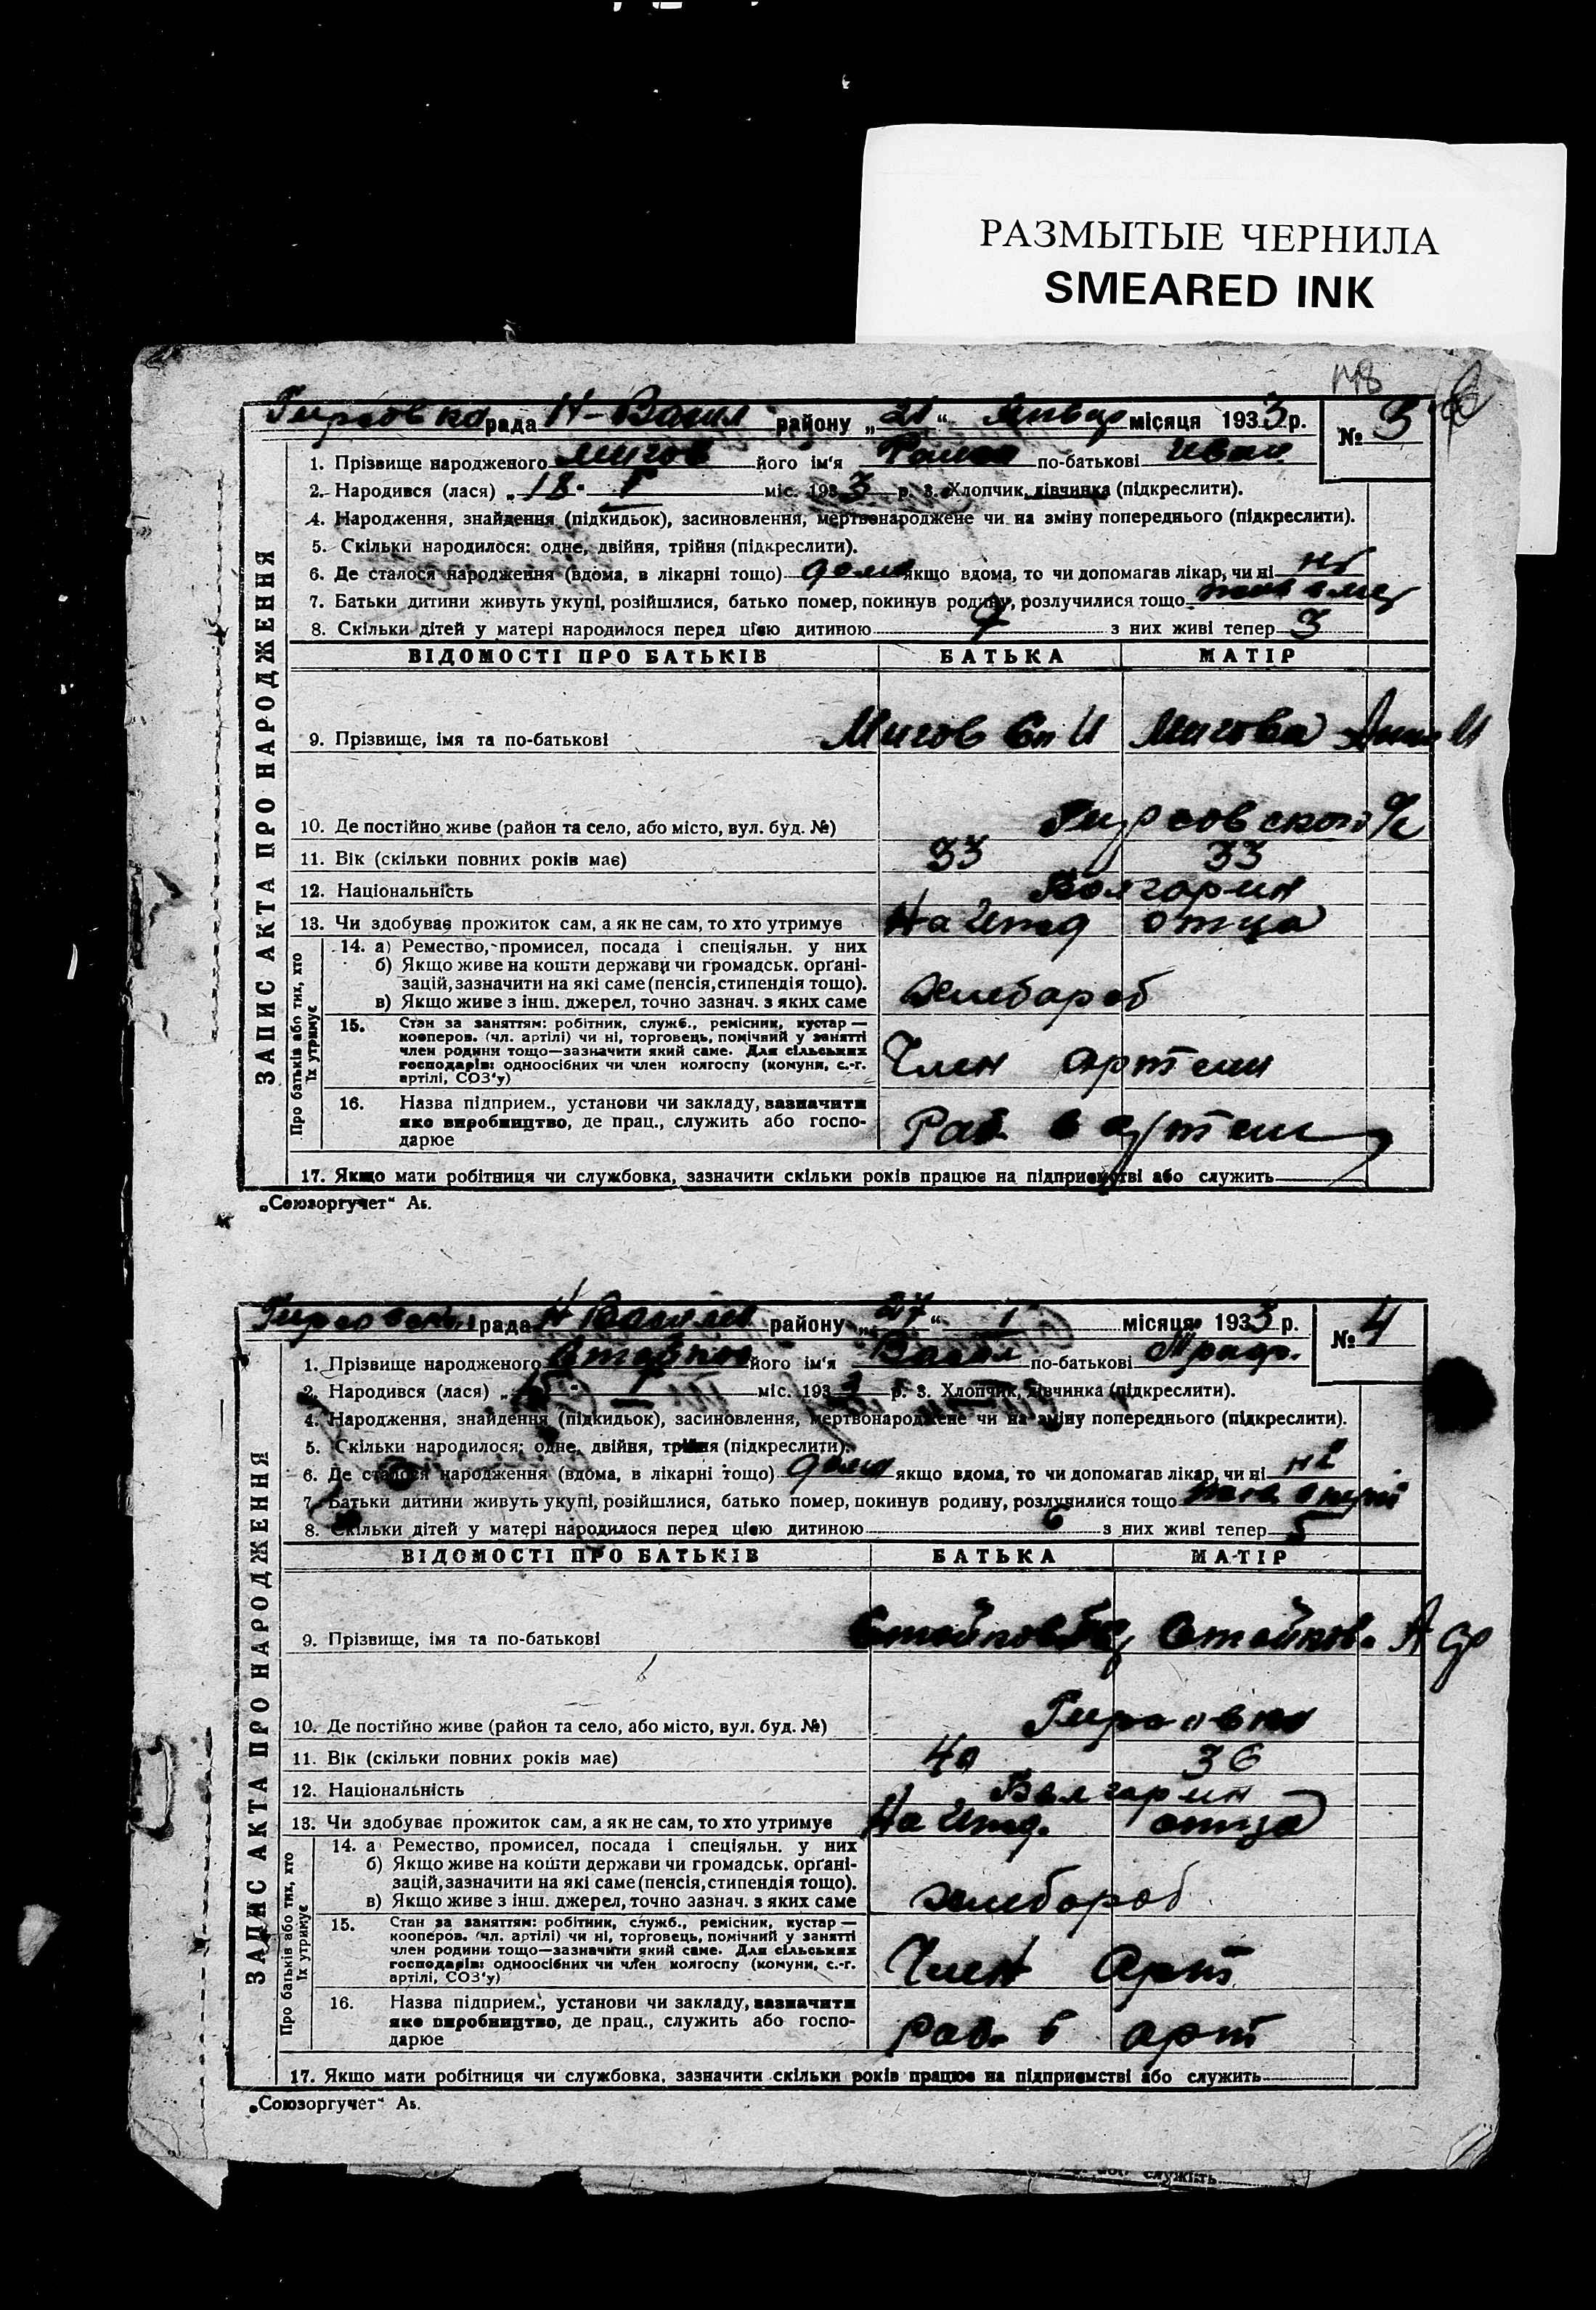 РАЗМЫТЫЕ ЧЕРНИЛА
SMEARED INK
148
Гирсовка рада Н-Васил району „21“ Январ місяця 1933 р.
№ 3
1. Прізвище народженого Мигов його ім'я по-батькові Иван
2. Народився (лася) „18. I міс. 1933 р. 3. Хлопчик, дівчинка (підкреслити).
4. Народження, знайдення (підкидьок), засиновлення, мертвонароджене чи на зміну попереднього (підкреслити).
5. Скільки народилося: одне, двійня, трійня (підкреслити).
6. Де сталося народження (вдома, в лікарні тощо) дома якщо вдома, то чи допомагав лікар, чи ні
7. Батьки дитини живуть укупі, розійшлися, батько помер, покинув родину, розлучилися тощо
8. Скільки дітей у матері народилося перед цією дитиною 7 з них живі тепер 3
ЗАПИС АКТА ПРО НАРОДЖЕННЯ
ВІДОМОСТІ ПРО БАТЬКІВ БАТЬКА МАТІР
9. Прізвище, імя та по-батькові Мигов И Мигова Анна И
10. Де постійно живе (район та село, або місто, вул. буд. №) Гирсовской
11. Вік (скільки повних років має) 33 33
12. Національність Болгарин
13. Чи здобуває прожиток сам, а як не сам, то хто утримує На Ижд отца
Про батьків або тих, хто їх утримує
14. а) Ремество, промисел, посада і спеціяльн. у них
б) Якщо живе на кошти держави чи громадськ. орґані-
зацій, зазначити на які саме (пенсія, стипендія тощо).
в) Якщо живе з інш. джерел, точно зазнач. з яких саме
хлебороб
15. Стан за заняттям: робітник, служб., ремісник, кустар —
кооперов. (чл. артілі) чи ні, торговець, помічний у занятті
член родини тощо—зазначити який саме. Для сільських
господарів: одноосібних чи член колгоспу (комуни, с.-г.
артілі, СОЗ'у)
Член артели
16. Назва підприєм., установи чи закладу, зазначити
яке виробництво, де прац., служить або госпо-
дарює
Раб. в артели
17. Якщо мати робітниця чи службовка, зазначити скільки років працює на підприємстві або служить
„Союзоргучет“ Аз.
рада Н Василев району „27“ I місяця 1933 р.
№ 4
1. Прізвище народженого його ім'я Васил по-батькові
2. Народився (лася) „ I міс. 1933 р. 3. Хлопчик, дівчинка (підкреслити).
4. Народження, знайдення (підкидьок), засиновлення, мертвонароджене чи на зміну попереднього (підкреслити).
5. Скільки народилося: одне, двійня, трійня (підкреслити).
6. Де сталося народження (вдома, в лікарні тощо) дома якщо вдома, то чи допомагав лікар, чи ні
7. Батьки дитини живуть укупі, розійшлися, батько помер, покинув родину, розлучилися тощо
8. Скільки дітей у матері народилося перед цією дитиною 6 з них живі тепер 5
ЗАПИС АКТА ПРО НАРОДЖЕННЯ
ВІДОМОСТІ ПРО БАТЬКІВ БАТЬКА МАТІР
9. Прізвище, імя та по-батькові Стойков Стойкова А
10. Де постійно живе (район та село, або місто, вул. буд. №) Гирсовка
11. Вік (скільки повних років має) 40 36
12. Національність Болгарин
13. Чи здобуває прожиток сам, а як не сам, то хто утримує На Ижд. отца
Про батьків або тих, хто їх утримує
14. а Ремество, промисел, посада і спеціяльн. у них
б) Якщо живе на кошти держави чи громадськ. орґані-
зацій, зазначити на які саме (пенсія, стипендія тощо).
в) Якщо живе з інш. джерел, точно зазнач. з яких саме
хлебороб
15. Стан за заняттям: робітник, служб., ремісник, кустар —
кооперов. (чл. артілі) чи ні, торговець, помічний у занятті
член родини тощо—зазначити який саме. Для сільських
господарів: одноосібних чи член колгоспу (комуни, с.-г.
артілі, СОЗ'у)
Член Арт
16. Назва підприєм., установи чи закладу, зазначити
яке виробництво, де прац., служить або госпо-
дарює
Раб. в арт
17. Якщо мати робітниця чи службовка, зазначити скільки років працює на підприємстві або служить
„Союзоргучет“ Аз.
служить